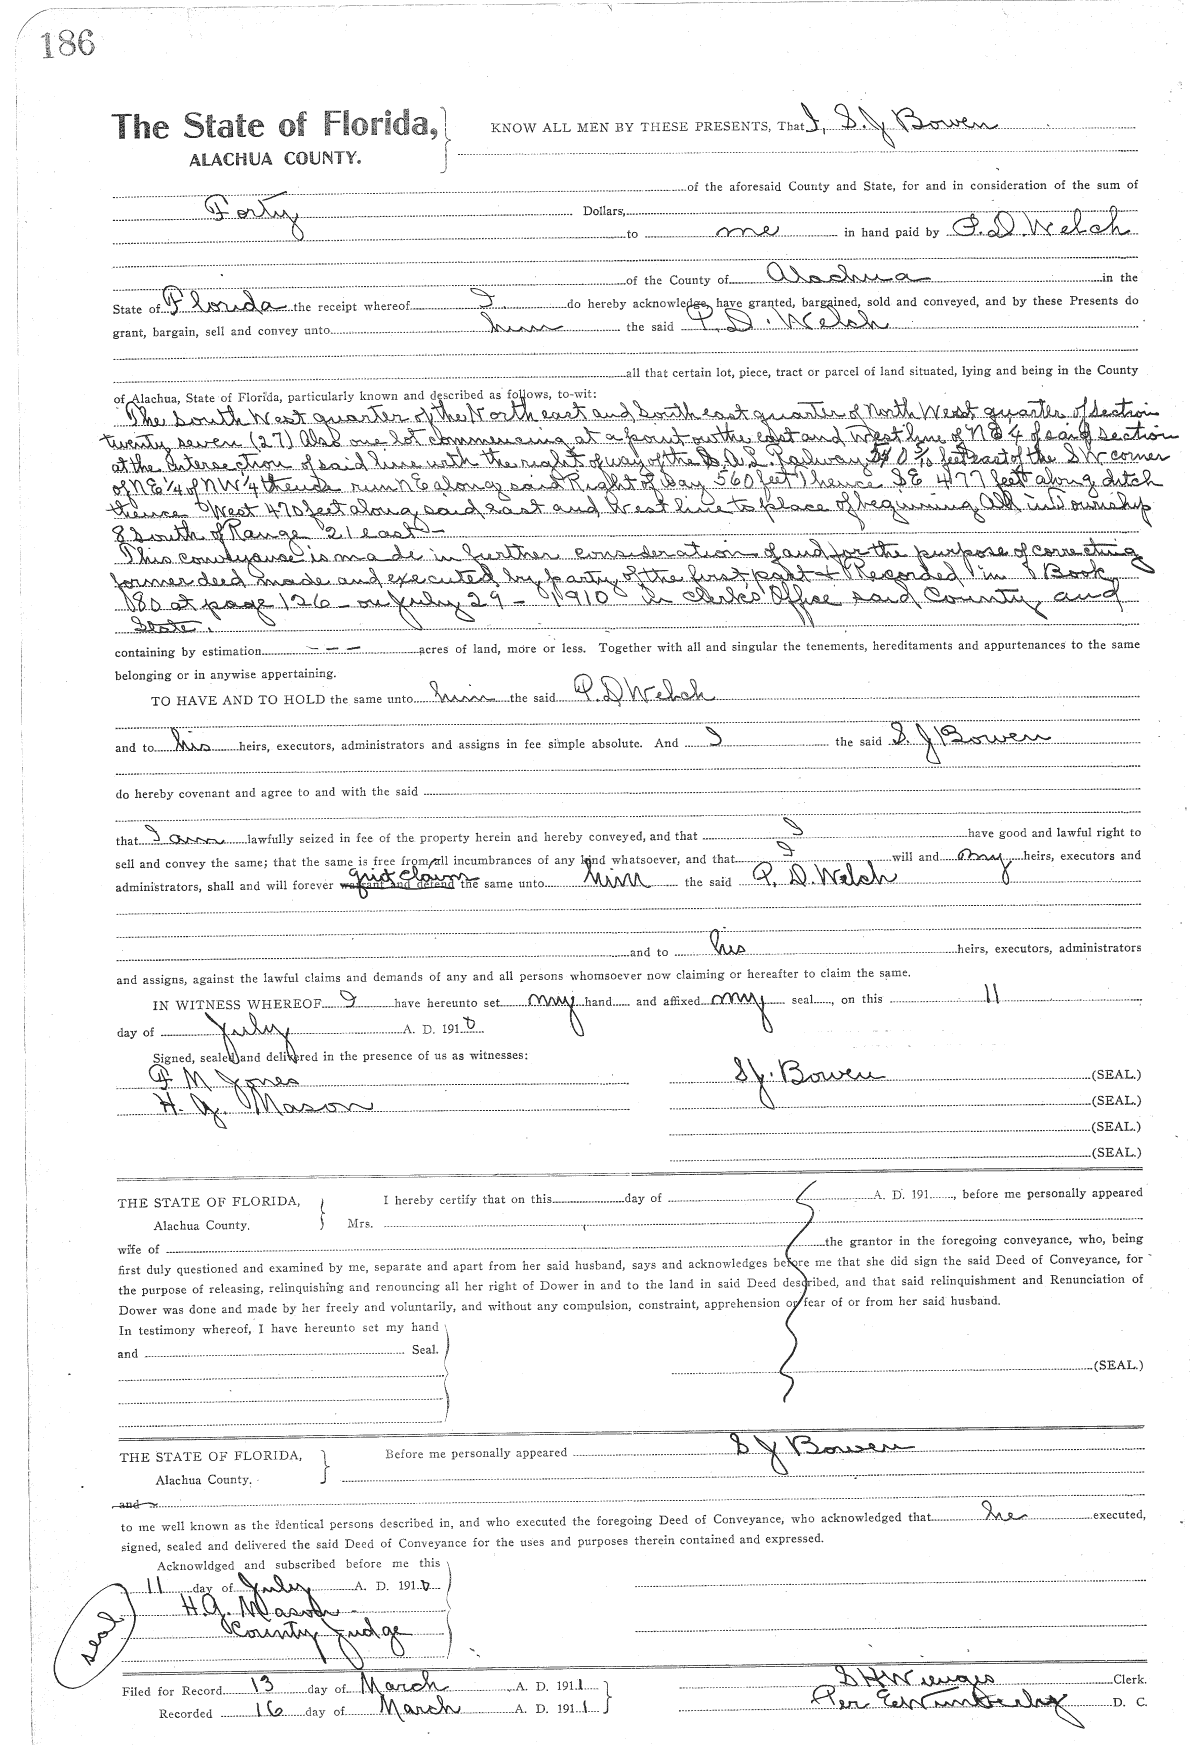 186
The State of Florida, KNOW ALL MEN BY THESE PRESENTS, That I, S. J Bowen
ALACHUA COUNTY.
of the aforesaid County and State, for and in consideration of the sum of
Forty Dollars,
to me in hand paid by P. D. Welch
of the County of Alachua in the
State of Florida the receipt whereof I do hereby acknowledge, have granted, bargained, sold and conveyed, and by these Presents do
grant, bargain, sell and convey unto him the said P. D. Welch
all that certain lot, piece, tract or parcel of land situated, lying and being in the County
of Alachua, State of Florida, particularly known and described as follows, to-wit:
The South West quarter of the North east and South east quarter of North West quarter of section
twenty seven (27) Also one lot commencing at a point on the east and West line of NE 4 of said section
at the Intersection of said line with the right of way of the S. A. L. Railway feet east of the SW corner
of NE 1/4 of NW 1/4 thence run NE along said Right of Way 560 feet thence SE 477 feet along ditch
thence West 470 feet along said east and West line to place of beginning All in Township
8 South of Range 21 east -
This conveyance is made in further consideration of and for the purpose of correcting
former deed made and executed by party of the first part & Recorded in Book
80 at page 126 - on July 29 - 1910 in Clerk's Office said County and
State.
containing by estimation - - - acres of land, more or less. Together with all and singular the tenements, hereditaments and appurtenances to the same
belonging or in anywise appertaining.
TO HAVE AND TO HOLD the same unto him the said P. D Welch
and to his heirs, executors, administrators and assigns in fee simple absolute. And I the said S. J Bowen
do hereby covenant and agree to and with the said
that I am lawfully seized in fee of the property herein and hereby conveyed, and that I have good and lawful right to
sell and convey the same; that the same is free from all incumbrances of any kind whatsoever, and that I will and my heirs, executors and
administrators, shall and will forever warrant and defend quit claim the same unto him the said P. D. Welch
and to his heirs, executors, administrators
and assigns, against the lawful claims and demands of any and all persons whomsoever now claiming or hereafter to claim the same.
IN WITNESS WHEREOF I have hereunto set my hand and affixed my seal, on this 11
day of July A. D. 1910
Signed, sealed and delivered in the presence of us as witnesses:
F M Jones S J. Bowen (SEAL.)
H. G. Mason (SEAL.)
(SEAL.)
(SEAL.)
THE STATE OF FLORIDA, I hereby certify that on this day of A. D. 191 , before me personally appeared
Alachua County. Mrs.
wife of the grantor in the foregoing conveyance, who, being
first duly questioned and examined by me, separate and apart from her said husband, says and acknowledges before me that she did sign the said Deed of Conveyance, for
the purpose of releasing, relinquishing and renouncing all her right of Dower in and to the land in said Deed described, and that said relinquishment and Renunciation of
Dower was done and made by her freely and voluntarily, and without any compulsion, constraint, apprehension or fear of or from her said husband.
In testimony whereof, I have hereunto set my hand
and Seal.
(SEAL.)
THE STATE OF FLORIDA, Before me personally appeared S J Bowen
Alachua County.
and
to me well known as the identical persons described in, and who executed the foregoing Deed of Conveyance, who acknowledged that he executed,
signed, sealed and delivered the said Deed of Conveyance for the uses and purposes therein contained and expressed.
Acknowldged and subscribed before me this
11 day of July A. D. 1910
H. G. Mason
County Judge
seal
Filed for Record 13 day of March A. D. 1911 S H Wienges Clerk.
Recorded 16 day of March A. D. 1911 Per D. C.